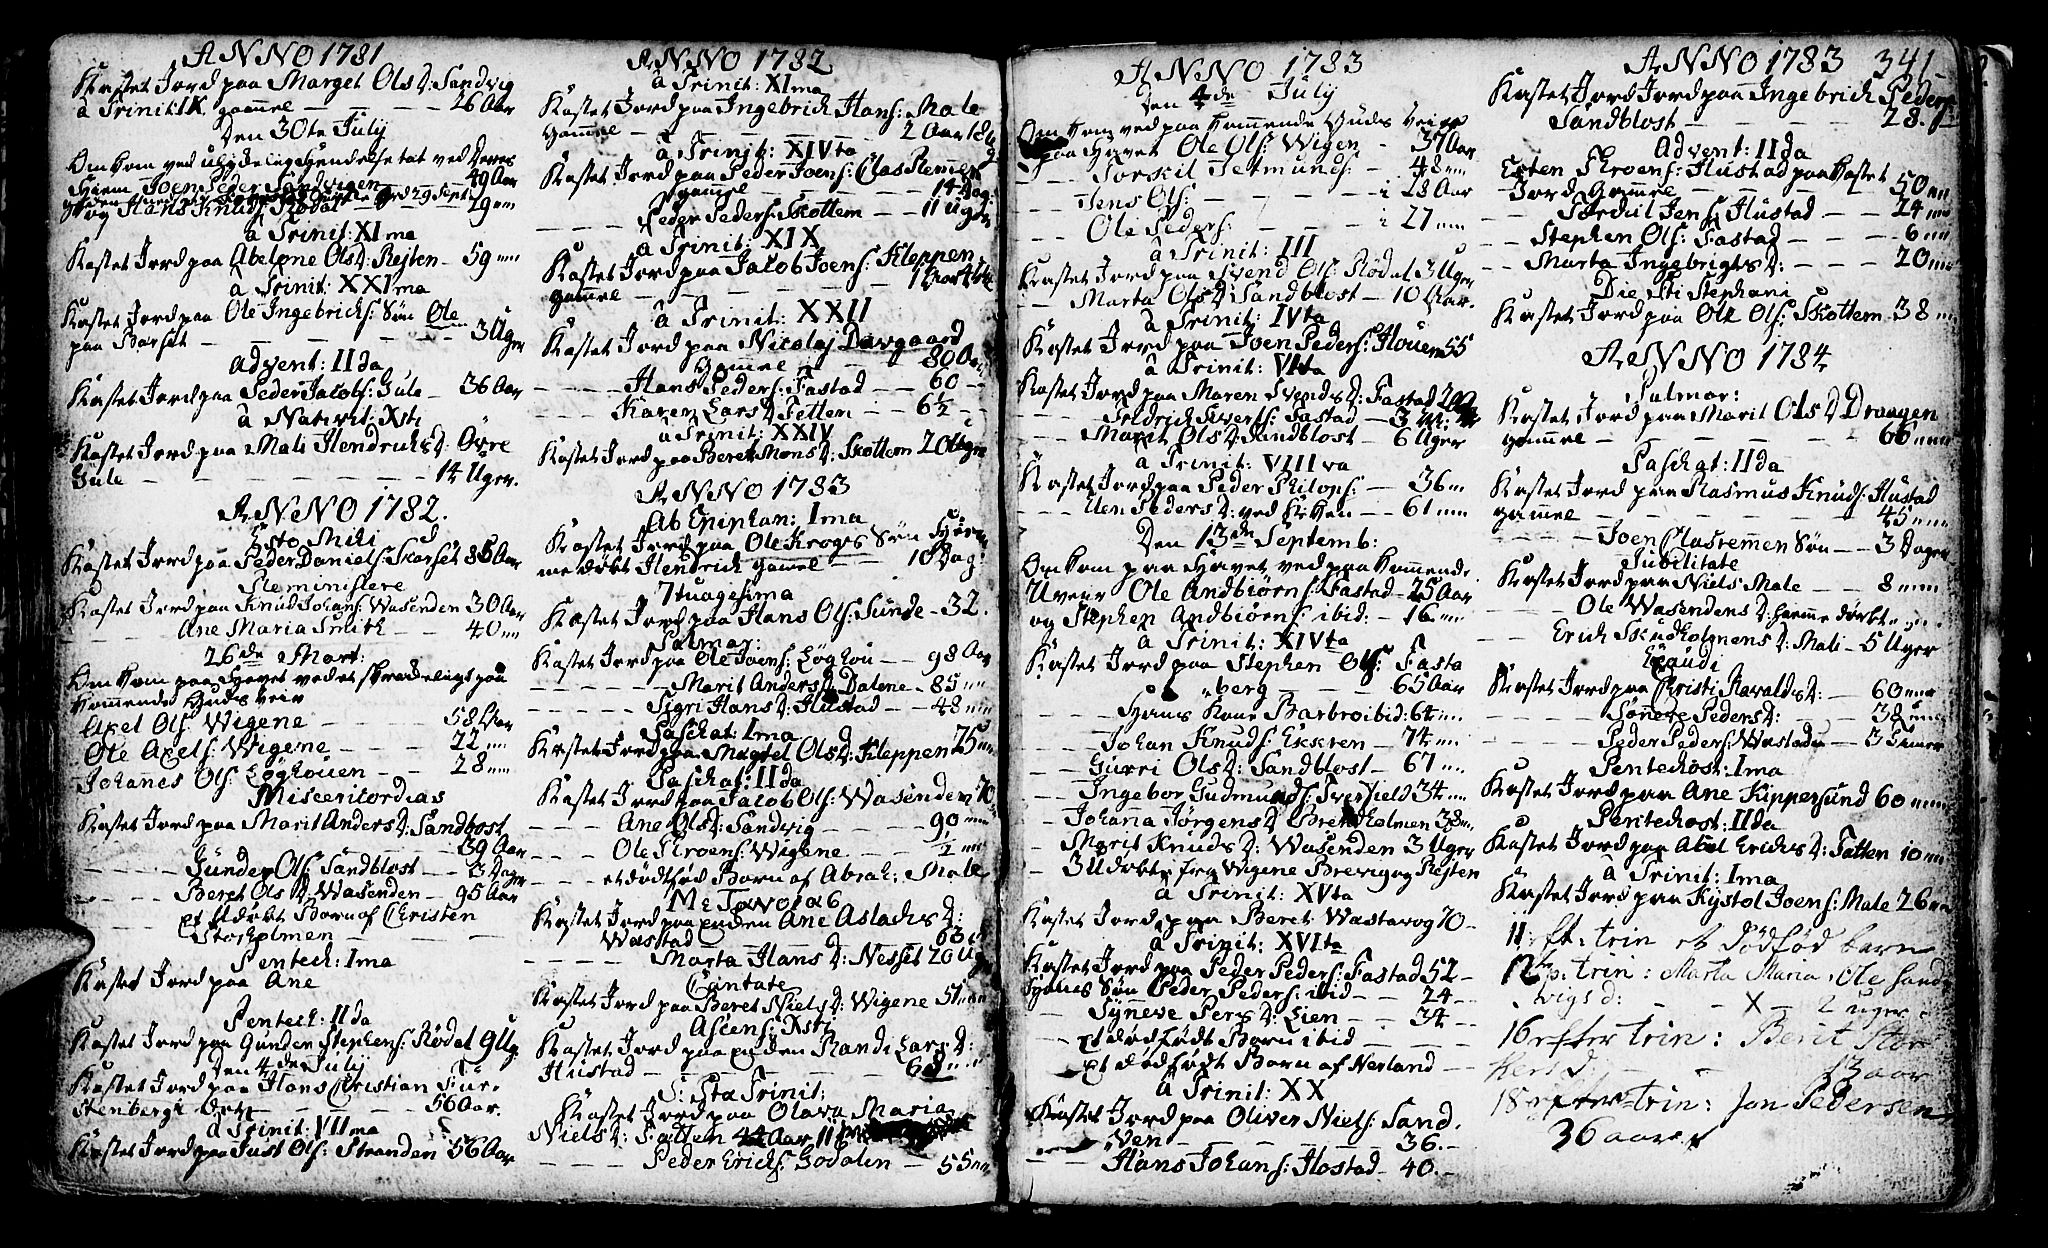 ANNO 1781
Kastet Jord paa Marget Ols D: Sandvig
â Trinit: IX gamel — — — 26 Aar
Den 30te July
Omkom ved ulydelig Hendelse tæt ved Deres
Hiem Joen Peder Sandvigen 49 Aar
og Hans Knuds: Rödal — 29 —
â Trinit: XI ma
Kastet Jord paa Abelone Ols D: Rejten — 59 —
â Trinit: XXI ma
Kastet Jord paa Ole Ingebrichs: Søn Ole
paa Barset — — — 3 Uger
Advent: II da
Kastet Jord paa Peder Jacobs: Gule — 36 Aar
â Nativit: Xsti
Kastet Jord paa Mali Hendrichs D: Øvre
Gule — — — 14 Uger.
ANNO 1782.
Esto Mihi
Kastet Jord paa Peder Daniels: Skarset 85 Aar
Kastet Jord paa Knud Johans: Wasenden 30 Aar
— — Ane Maria Smith — — 40 —
26de Mart:
Omkom paa Havet vedet skrædeligt paa
kommende Guds veir
Axel Ols: Wigene — — — 58 Aar
Ole Axels: Wigene — — — 22 —
Johannes Ols: Løghouen — — 28 —
Misericordias
Kastet Jord paa Marit Anders D: Sandbost
— — — 39 Aar
— — Gunder Ols: Sandblost — 3 Dager
— — Beret Ols D: Wasenden — 95 Aar
— — et Udøbt Barn af Christen
— — Storholmen — — —
Pentech: I ma
Kastet Jord paa Ane
Pentech: II da
Kastet Jord paa Gunder Stephens: Rödal 9 Ug.
Den 4de July
Kastet Jord paa Hans Christian Für-
stenbargs — — — 56 Aar.
â Trinit: VII ma
Kastet Jord paa Just Ols: Stranden 56 Aar
ANNO 1782
â Trinit: XI ma
Kastet Jord paa Ingebrich Hans: Male
Gamel — — — 2 Aar
â Trinit: XIV ta
Kastet Jord paa Peder Joens: Clas Remen
gamel — — 14 Dag:
— — — Peder Peders: Skottem — — 11 Uger
â Trinit: XIX
Kastet Jord paa Jacob Joens: Kleppen
gamel — — —
â Trinit: XXII
Kastet Jord paa Nicolaj Davgaard
Gamel — — 80 Aar
— — — Hans Peders: Fastad — — 60 —
— — — Karen Lars D: Fetten — — 6½ —
â Trinit: XXIV
Kastet Jord paa Beret Mons D: Skottem 20 Uger
ANNO 1783
Ab Epiphan: I ma
Kastet Jord paa Ole Kroges Søn Hiem-
me døbt Hendrich gamel — — 10 Dag:
7tuagesima
Kastet Jord paa Hans Ols: Sunde — 32.
Palmar:
Kastet Jord paa Ole Joens: Løghou — — 98 Aar
— — — Marit Anders D: Dalene — 85 —
— — — Sigri Hans D: Hustad — — 48 —
Paschat: I ma
Kastet Jord paa Magrel Ols D: Kleppen 75 —
Paschat: II da
Kastet Jord paa Jacob Ols: Wasenden 70
— — — Ane Ols D: Sandvig — — — 90 —
— — — Ole Throens: Wigene — — ½ —
— — — et dødfød Barn af Abrah: Male
Kastet Jord paa enden Ane Aslachs D:
Wastad — — — 63
— — — Marta Hans D: Nesset 20 Ug
Cantate
Kastet Jord paa Beret Niels D: Wigene 51 —
Ascens: Xsti
Kastet Jord paa enden Randi Lars D:
Hustad — — — 68 —
S: Sta Trinit:
Kastet Jord paa Olava Maria
Niels D: Fatten 44 Aar 11
— — — Peder Erichs: Godalen — 55 —
ANNO 1783
Den 4de July
Omkom ved paa kommende Guds Veir
paa Havet Ole Ols: Wigen — 37 Aar
— — — Torskil Tetmunds: — 48 —
— — Jens Ols: — — — 28 Aar
— — Ole Peders: — — — 27 —
â Trinit: III
Kastet Jord paa Svend Ols: Rödal 3 Uger
— — Marta Ols D: Sandblost — 10 Aar.
â Trinit: IV ta
Kastet Jord paa Joen Peders: Houem 55
â Trinit: VI ta
Kastet Jord paa Maren Svends D: Fastad
— — Fridrich Iversf: Fastad — 3
— — Marit Ols D: Sandblost — 6 Uger
â Trinit: VIII va
Kastet Jord paa Peder Philops: — 36 —
— — — Peders D: ved — 61 —
Den 13de Septemb:
Omkom paa Havet ved paa kommende
Uveir Ole Andbiørns: Fastad — 25 Aar
og Stephen Andbiørns: ibid: — 16 —
â Trinit: XIV ta
Kastet Jord paa Stephen Ols: Fasta
berg — — — 65 Aar
— — — Hans Kone Barbro ibid: 64 —
— — — Johan Knuds: Ekkren — 74 —
— — Gurri Ols D: Sandblost — 67 —
— — Ingebor Gudmunds: Tverfield 34 —
— — Johana Jørgens D: Brendholmen 38 —
— — Marit Knuds D: Wasenden 3 Uger
— — 3 Udøbte fra Wigene Brevig og Rejten
â Trinit: XV ta
Kastet Jord paa Beret Wastavog 70 —
â Trinit: XVI ta
Kastet Jord paa Peder Peders: Fastad 52 —
Hans Søn Peder Peders: ibid — — 24 —
— — Syneve Pers D: Lien — — 34 —
— — et dødfødt Barn ibid — —
— — et dødfødt Barn af Nerland — —
â Trinit: XX
Kastet Jord paa Oliver Niels: Sand.
Ven — — — 36. —
— — Hans Johans: Hostad — 40. —
ANNO 1783 341
Kastet Jord Jord paa Ingebrich Peders
Sandblost — — — 28.
Advent: II da
Esten Throens: Hustad paa Kastet
Jord Gamel — — — 50 —
— — Tordiil Jens: Hustad — — 24 —
— — Stephen Ols: Fastad — — — 6 —
— — Marta Ingebrigts D: — — 20 —
Die Sti Stephani
Kastet Jord paa Ole Ols: Skottem 38 —
ANNO 1784
Palmar:
Kastet Jord paa Marit Ols D: Draagen
gamel — — — 66 —
Paschat: II da
Kastet Jord paa Rasmus Knuds: Hustad
gamel — — — 45 —
— — — Joen Clasremen Søn — — 3 Dager
Jubilate
Kastet Jord paa Niels Male — — 8 —
— — Ole Wasendens D: hiemme døbt
— — Erich Skudholmens D: Mali — 5 Uger
Exaudi
Kastet Jord paa Christi Havalds D: — 60 —
— — Sønneve Peders D: — — 38 —
— — Peder Peders: Wastad — 3 Timer
Pentechost: I ma
Kastet Jord paa Ane Kippersund 60 —
Pentechost: II da
Kastet Jord paa Abel Erichs D: Fatten 10 —
â Trinit: I ma
Kastet Jord paa Kystol Joens: Male 26
11 eft: trin et dödföd barn
12 p: trin: Marta Maria Ole Sand-
vigs d: — — X — 2 uger
16 efter trin: Berit Stor
— — — 13 aar
18 efter trin: Jon Pedersen
36 aar